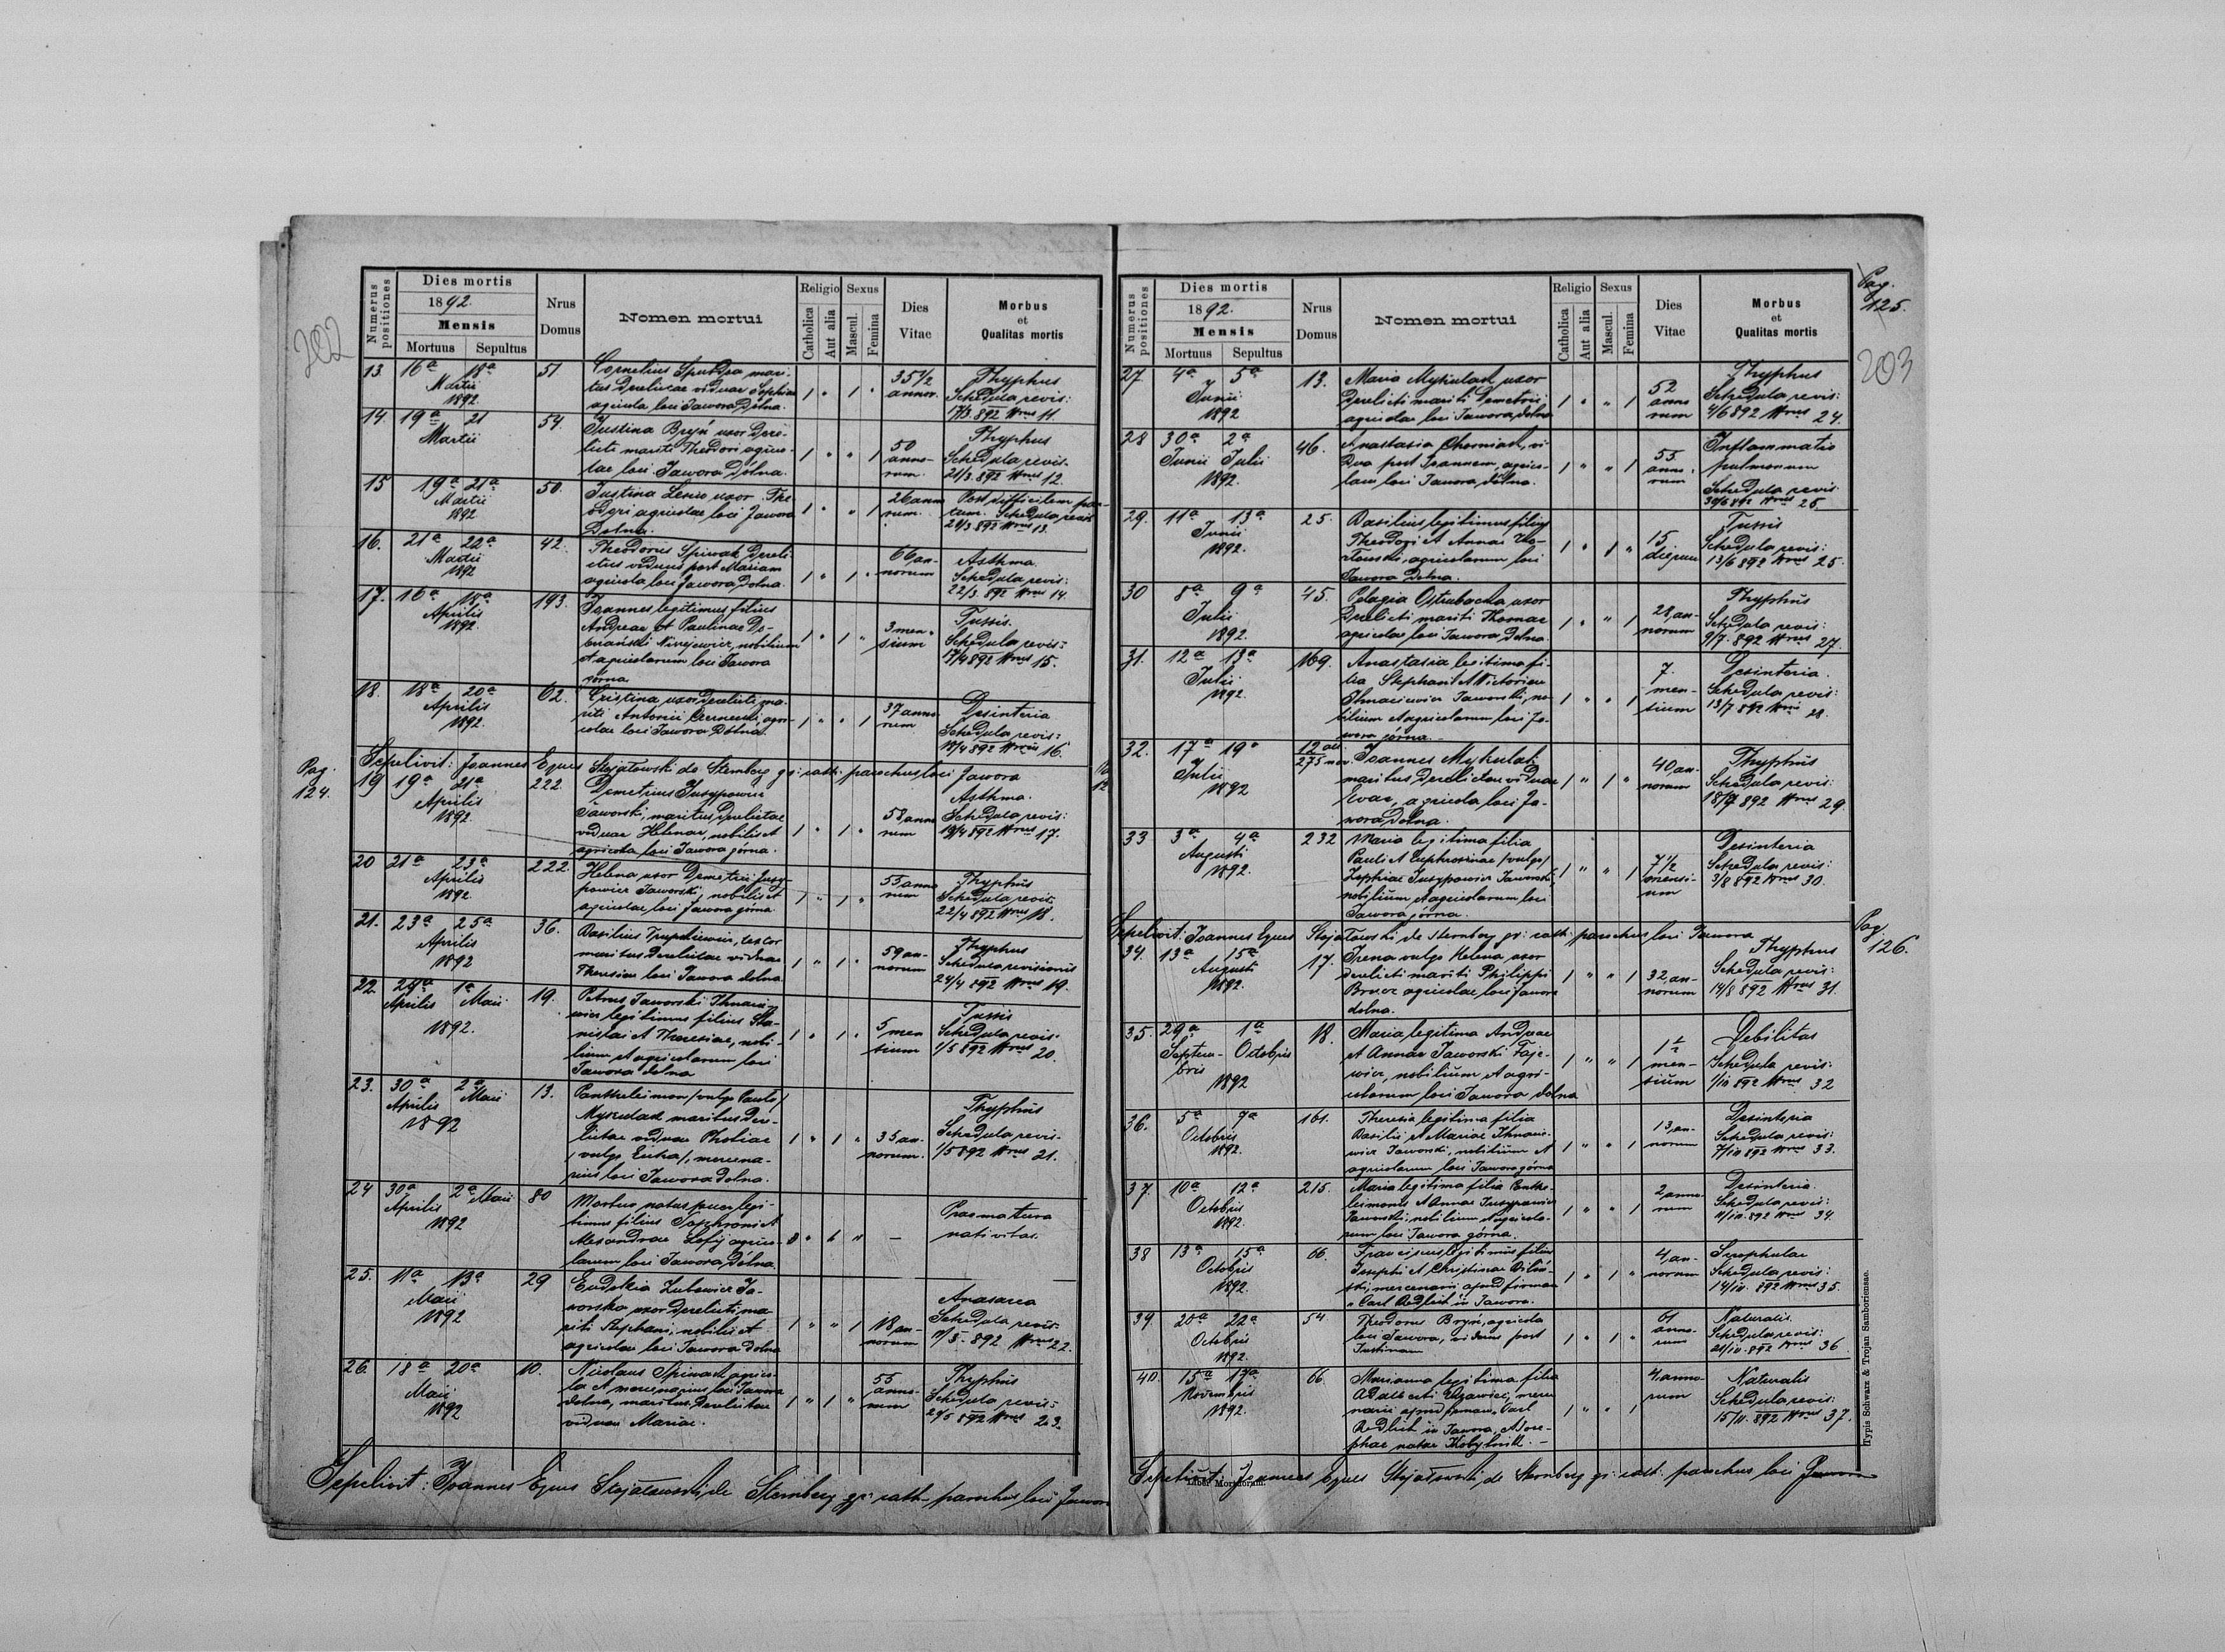 202
Numerus positiones
Dies mortis
1892.
Mensis
Mortuus Sepultus
Nrus Domus
Nomen mortui
Religio
Catholica
Aut alia
Sexus
Mascul.
Femina
Dies Vitae
Morbus
et
Qualitas mortis
13 16a 18a Martii 1892. 51
Cornelius mari-
tus derelictae viduae Sophiae
agricola loci Jawora Dolna.
1 " 1 " 35 1/2 annor.
Thyphus
Schedula revis:
17/3 892 Nrus 11.
14. 19a 21 Martii 54.
Justina Bryń uxor dere-
licti mariti Theodori agrico-
lae loci Jawora Dólna.
1 " " 1 50 anno-
rum.
Thyphus
Schedula revis.
21/3 892 Nrus 12.
15 19a 21a Martii 1892 50.
Justina uxor The-
odori agricolae loci Jawora
Dolna.
1 " " 1 26 anno
rum.
Post difficilem par-
tum. Schedula revis
21/3 892 Nrus 13.
16. 21a 22a Martii 1892 42.
Theodorus Spiwak dereli-
ctus viduus post Mariam
agricola loci Jawora Dolna.
1 " 1 " 66 an-
norum
Asthma.
Schedula revis:
22/3 892 Nrus 14.
17. 16a 18a Aprilis 1892. 193.
Joannes legitimus filius
Andreae et Paulinae
nobilium
et agricolarum loci Jawora
górna
1 " 1 " 3 men-
sium
Tussis.
Schedula revis:
17/4 892 Nrus 15.
18. 18a 20a Aprilis 1892. 62.
Cristina uxor derelicti ma-
riti Antonii agri-
colae loci Jawora Dólna.
1 " " 1 37 anno
rum
Desinteria
Schedula revis:
18/4 892 Nrus 16.
Sepelivit: Joannes Eques Stojałowski de Sternberg gr: cath: parochus loci Jawora
Pag. 124.
19 19a 21a Aprilis 1892. 222.
Demetrius Jusypowicz
Jaworski, maritus derelictae
viduae Helenae, nobilis et
agricola loci Jawora górna.
1 " 1 " 58 anno
rum
Asthma.
Schedula revis:
19/4 892 Nrus 17.
20 21a 23a Aprilis 1892. 222.
Helena uxor Demetrii Jusy-
powicz Jaworski, nobilis et
agricolae, loci Jawora górna
1 " 1 " 55 anno
rum
Thyphus
Schedula revis:
22/4 892 Nrus 18.
21. 23a 25a Aprilis 1892 36.
Basilius textor
maritus derelictae viduae
Theresiae loci Jawora dolna.
1 " 1 " 59 an-
norum
Thyphus
Schedula revisionis
24/4 892 Nrus 19.
22. 29a Aprilis 1a Maii 1892. 19.
Petrus Jaworski Ihnace-
wicz legitimus filius Sta-
nislai et Theresiae, nobi-
lium et agricolarum loci
Jawora dolna
1 " 1 " 5 men
sium
Tussis
Schedula revis.
1/5 892 Nrus 20.
23. 30a Aprilis 2a Maii 1892 13.
Pantheleimon /vulgo Paulo/
Mykulak maritus dere-
lictae viduae
/vulgo /, mercena-
rius loci Jawora Dolna.
1 " 1 " 35 an-
norum.
Thyphus
Schedula revis.
1/5 892 Nrus 21.
24 30a Aprilis 2a Maii 1892 80
Mortus natus puer legi-
timus filius Sophronii et
Alexandrae agrico-
larum loci Jawora Dólna.
—
Praematura
nativitas.
25. 11a 13a Maii 1892 29
Eudokia Ja-
worska uxor derelicti ma-
riti Stephani, nobilis et
agricolae loci Jawora dolna
1 " " 1 18 an-
norum
Anasarca
Schedula revis:
11/5 892 Nrus 22.
26. 18a 20a Maii 1892 10.
Nicolaus Spiwak agrico-
la et mercenarius loci Jawora
dolna, maritus derelictae
viduae Mariae.
1 " 1 " 55 anno-
rum
Thyphus
Schedula revis:
892 Nrus 23.
Sepelivit: Joannes Eques Stojałowski de Sternberg gr: cath. parochus loci Jawora
Pag. 125.
203
Numerus positiones
Dies mortis
1892.
Mensis
Mortuus Sepultus
Nrus Domus
Nomen mortui
Religio
Catholica
Aut alia
Sexus
Mascul.
Femina
Dies Vitae
Morbus
et
Qualitas mortis
27. 4a 5a Junii 1892 13.
Maria Mykulak uxor
derelicti mariti Demetrii
agricolae loci Jawora dolna
1 " " 1 52 anno
rum
Thyphus
Schedula revis:
4/6 892 Nrus 24.
28 30a Junii 2a Julii 1892. 46.
Anastasia Choműak, vi-
dua post Joannem, agrico-
lam loci Jawora dólna.
1 " " 1 55 anno-
rum
Inflammatio
pulmonum
Schedula revis.
30/6 892 Nrus 25.
29. 11a 13a Junii 1892. 25.
Basilius legitimus filius
Theodozi et Annae
agricolarum loci
Jawora Dolna.
1 " 1 " 15 dierum
Tussis
Schedula revis:
13/6 892 Nrus 25.
30 8a 9a Julii 1892. 45.
Pelagia uxor
derelicti mariti Thomae
agricolae loci Jawora Dolna.
1 " " 1 28 an-
norum
Thyphus
Schedula revis:
9/7 892 Nrus 27.
31. 12a 13a Julii 1892. 169.
Anastasia legitima fi-
lia Stephani et Victoriae
Ihnacewicz Jaworski, no-
bilium et agricolarum loci Ja-
wora górna.
1 " " 1 7. men-
sium
Desinteria.
Schedula revis:
13/7 892 Nrus 28.
32. 17a 19a Julii 1892 12 alt. 275 nov.
Joannes Mykulak
maritus derelictae viduae
Evae, agricola loci Ja-
wora dolna.
1 " 1 " 40 an-
norum
Thyphus
Schedula revis:
18/7 892 Nrus 29.
33 3a 4a Augusti 1892. 232
Maria legitima filia
Pauli et Euphrosinae /vulgo/
Zophiae Jusypowicz Jaworski,
nobilium et agricolarum loci
Jawora górna.
1 " " 1 7 1/2 mensi-
um
Desinteria
Schedula revis:
3/8 892 Nrus 30.
Sepelivit: Joannes Eques Stojałowski de Sternberg gr: cath: parochus loci Jawora
Pag. 126.
34. 13a 15a Augusti 1892. 17.
Irena vulgo Helena uxor
derelicti mariti Philippi
agricolae loci Jawora
dolna.
1 " " 1 32 an-
norum
Thyphus
Schedula revis:
14/8 892 Nrus 31.
35. 29a Septem-
bris 1a Octobris 1892 18.
Maria legitima Andreae
et Annae Jaworski
nobilium et agri-
colarum loci Jawora dolna
1 " " 1 1 1/2 men-
sium
Debilitas
Schedula revis:
1/10 892 Nrus 32
36. 5a 7a Octobris 1892. 161.
Theresia legitima filia
Basilii et Mariae Ihnace-
wicz Jaworski, nobilium et
agricolarum loci Jawora górna
1 " " 1 13 an-
norum
Desinteria
Schedula revis:
7/10 892 Nrus 33.
37. 10a 12a Octobris 1892. 215.
Maria legitima filia Panthe-
leimonis et Annae Jusypowicz
Jaworski, nobilium et agricola-
rum loci Jawora górna.
1 " " 1 2 anno-
rum
Desinteria.
Schedula revis:
11/10 892 Nrus 34.
38 13a 15a Octobris 1892. 66.
Franciscus legitimus filius
Josephi et Christinae
mercenarii apud firmam
"Carl Redlich in Jawora.
1 " 1 " 4 an-
norum
Scrophulae
Schedula revis:
14/10 892 Nrus 35.
39. 20a 22a Octobris 1892. 54
Theodorus Bryń, agricola
loci Jawora, viduus post
Justinam
1 " 1 " 61 anno-
rum
Naturalis.
Schedula revis:
21/10 892 Nrus 36.
40. 15a 17a Novembris 1892. 66.
Marianna legitima filia
Adalberti merce
narii apud firmam "Carl
Redlich in Jawora, et
natae Kobylnik. —
1 " " 1 4 anno
rum
Naturalis
Schedula revis:
15/11 892 Nrus 37.
Sepelivit: Joannes Eques Stojałowski de Sternberg gr: cath: parochus loci Jawora
Liber Mortuorum.
Typis Schwarz & Trojan Samboriensae.